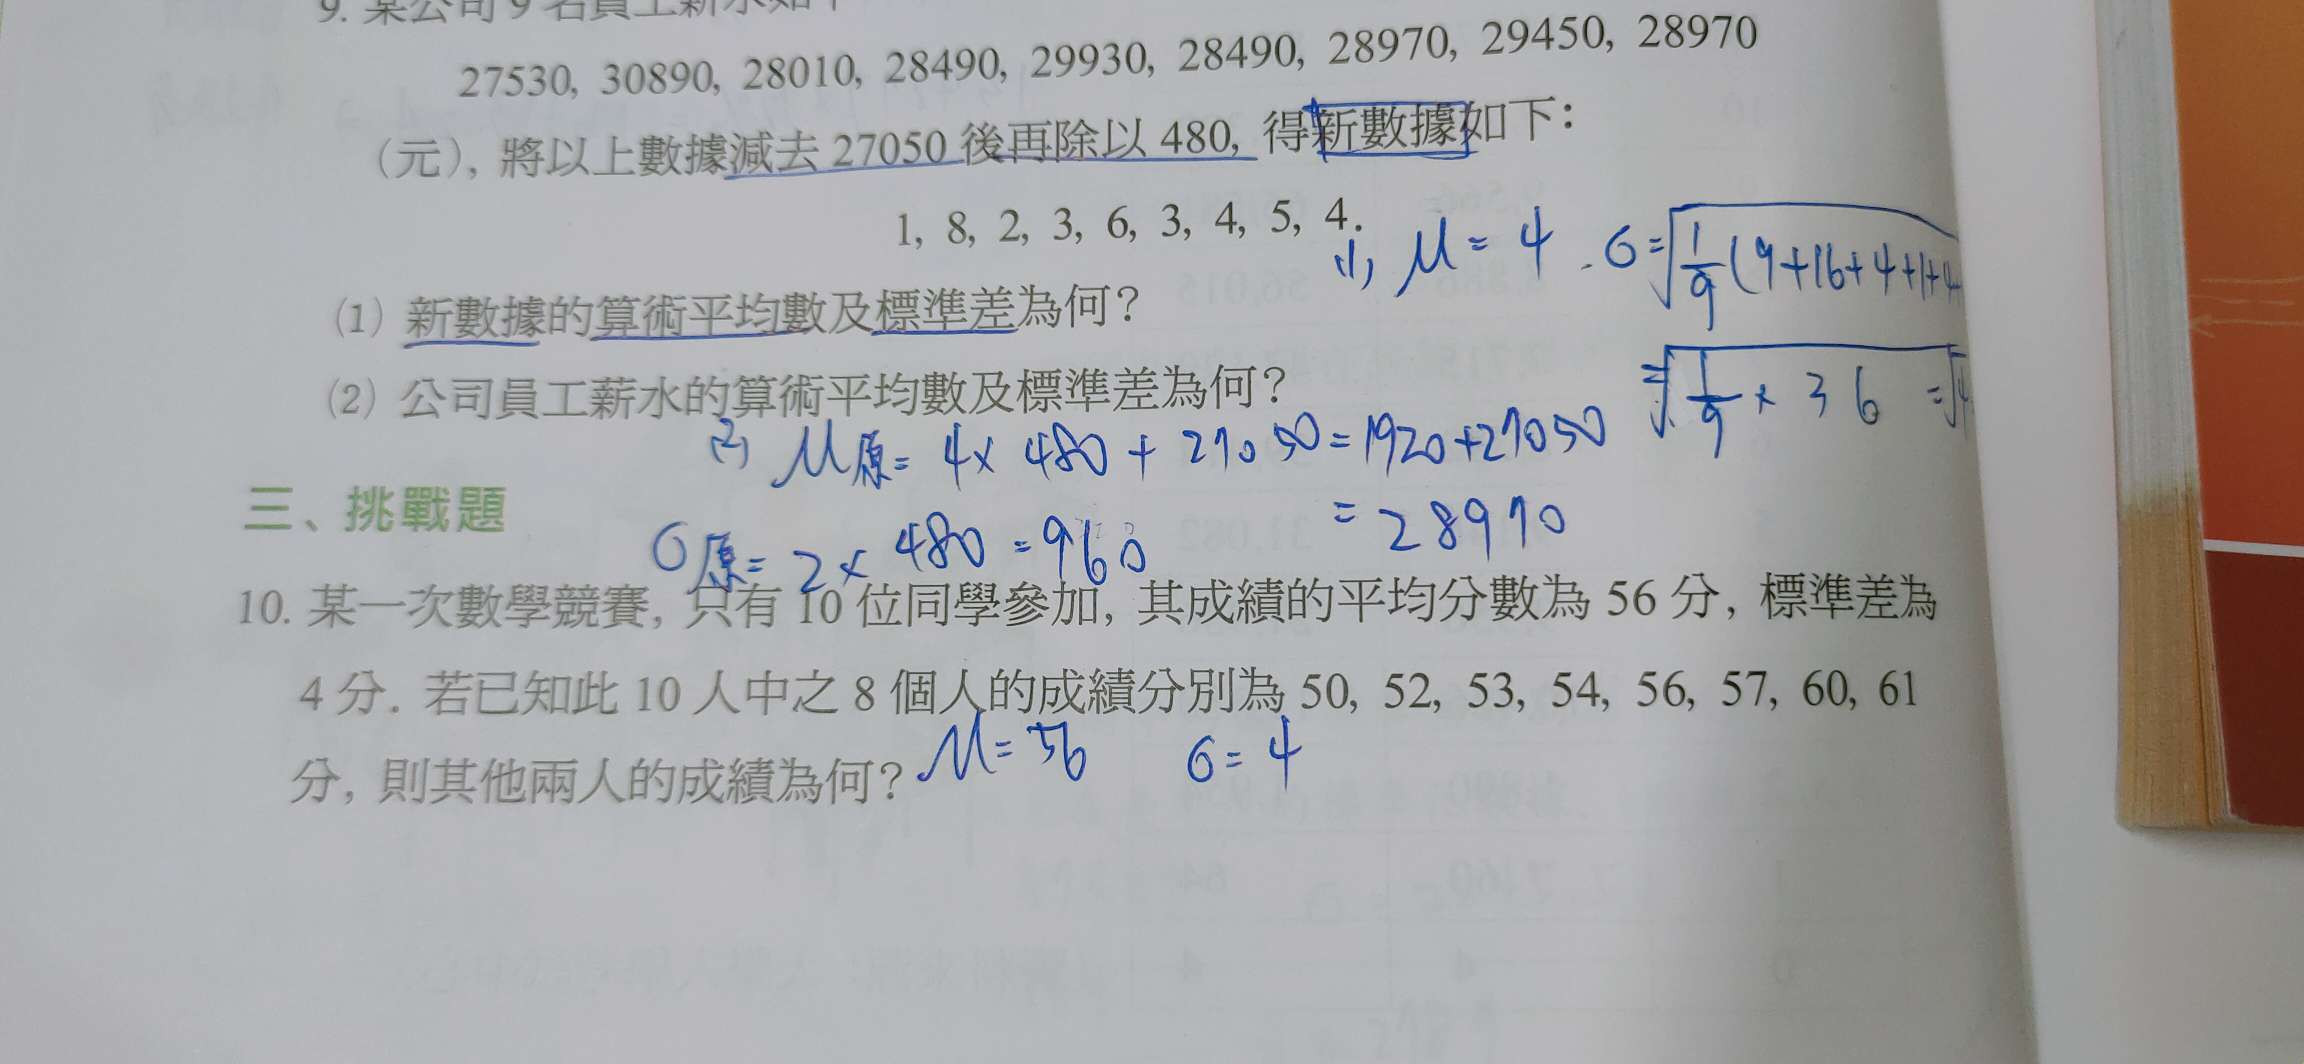 9. 某公司 9 名員工薪水如下
27530, 30890, 28010, 28490, 29930, 28490, 28970, 29450, 28970
(元), 將以上數據減去 27050 後再除以 480, 得新數據如下:
1, 8, 2, 3, 6, 3, 4, 5, 4.
(1) μ = 4 . σ = √1/9 (9+16+4+1+4
(1) 新數據的算術平均數及標準差為何?
= √1/9 × 36 = √4
(2) 公司員工薪水的算術平均數及標準差為何?
(2) μ原 = 4 × 480 + 27050 = 1920 + 27050
= 28970
三、挑戰題
σ原 = 2 × 480 = 960
10. 某一次數學競賽, 只有 10 位同學參加, 其成績的平均分數為 56 分, 標準差為
4 分. 若已知此 10 人中之 8 個人的成績分別為 50, 52, 53, 54, 56, 57, 60, 61
分, 則其他兩人的成績為何?
μ = 56 σ = 4